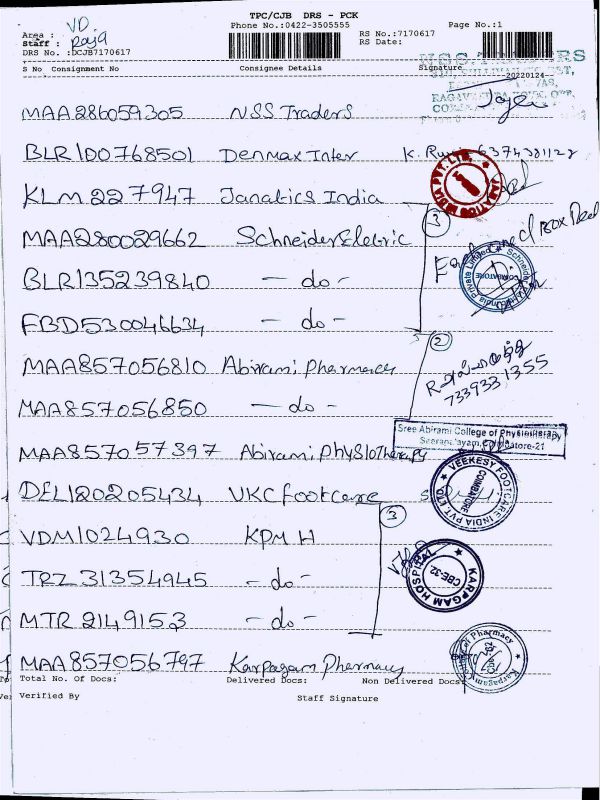 TPC/CJB DRS - PCK
Phone No.:0422-3505555 Page No.:1
Area : VD
Staff : Raja
DRS No. :DCJB7170617
RS No.:7170617
RS Date:
S No Consignment No Consignee Details Signature
20220124
NSS TRADERS
MAA286059305 NSS Traders
BLR100768501 Denmax Inter 6374381122
KLM227947 Janatics India
JANATICS INDIA PVT. LTD.
3
MAA280029662 Schneider Eletric
BLR135239840 - do -
Schneider India Private Limited
COIMBATORE
FBD530046634 - do -
2
MAA857056810 Abirami Pharmacy
7339331355
MAA857056850 - do -
Sree Abirami College of Physiotherapy
Coimbatore-21
MAA857057397 Abirami Physiotherapy
DEL120205434 VKC footcare
VEEKESY FOOTCARE INDIA PVT. LTD.
COIMBATORE
3
VDM1024930 KPM H
TRZ31354945 - do -
KARPAGAM HOSPITAL
CBE-32
MTR2149153 - do -
MAA857056797 Karpagam Pharmacy
Karpagam College of Pharmacy
Total No. Of Docs: Delivered Docs: Non Delivered Docs:
Verified By Staff Signature